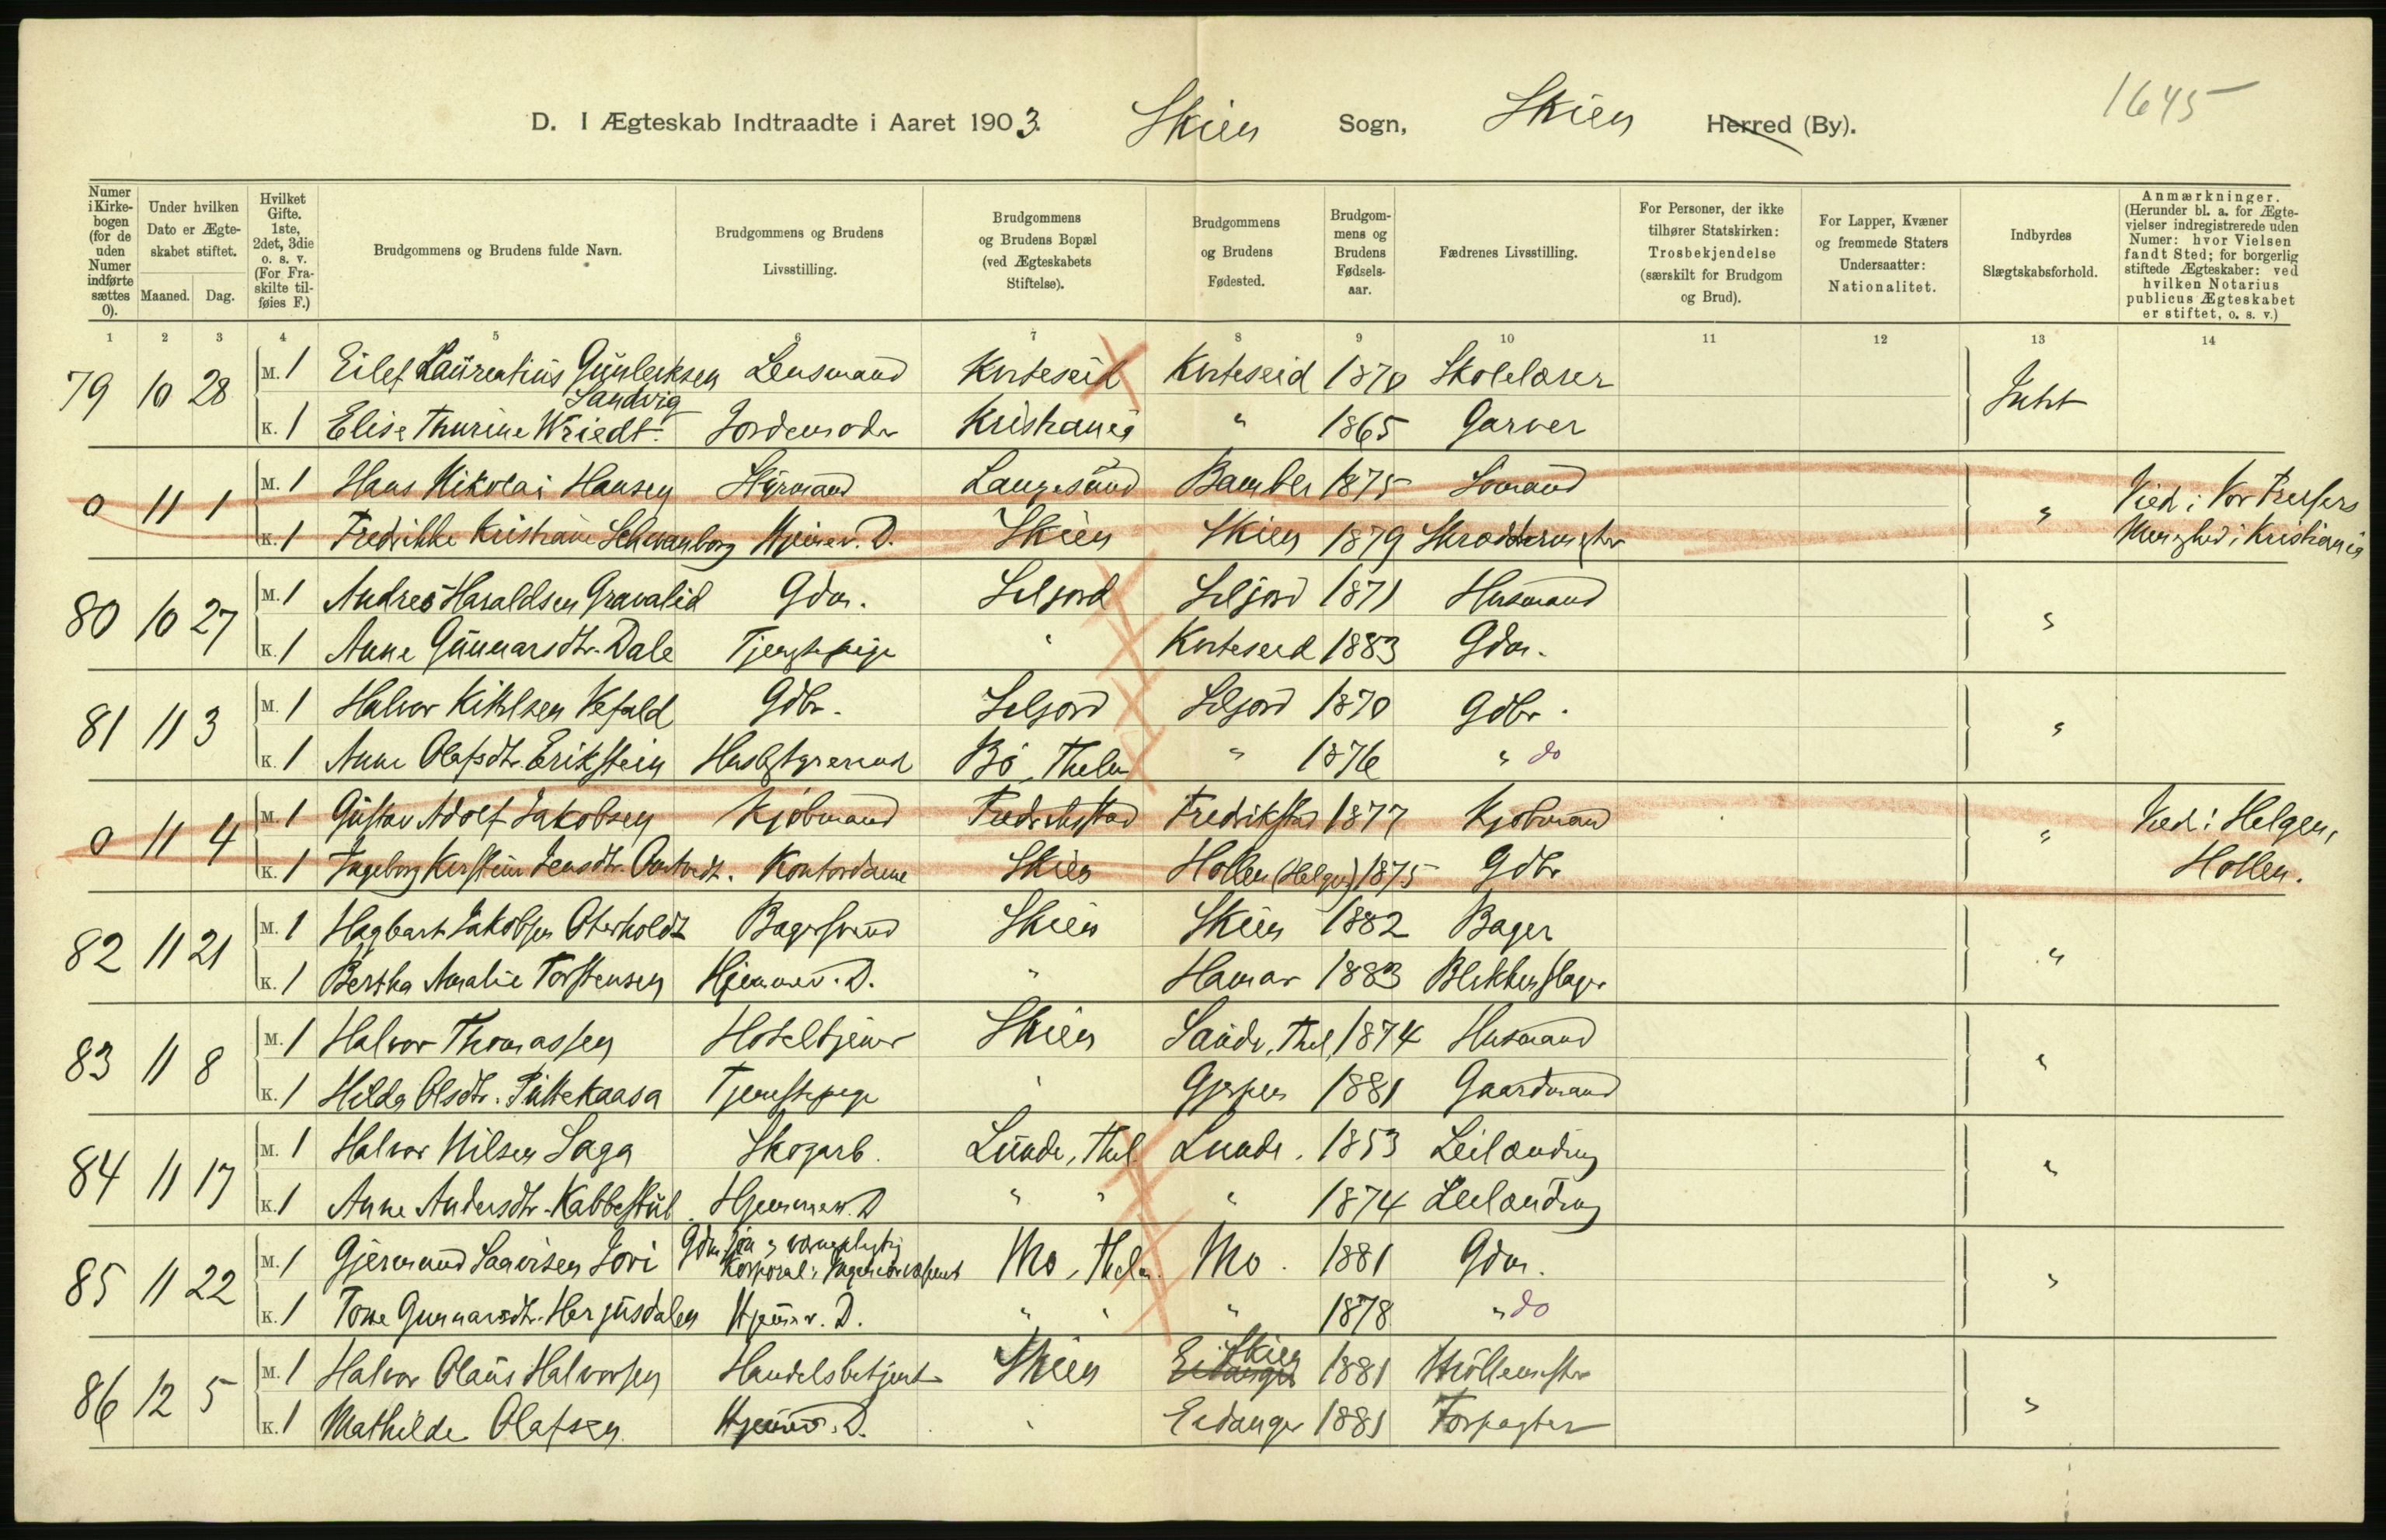 1645
D. I Ægteskab Indtraadte i Aaret 1903. Skien Sogn, Skien Herred (By).
Numer i Kirkebogen (for de uden Numer indførte sættes 0).
Under hvilken Dato er Ægteskabet stiftet.
Maaned. Dag.
Hvilket Gifte. 1ste, 2det, 3die o. s. v. (For Fraskilte tilføies F.)
Brudgommens og Brudens fulde Navn.
Brudgommens og Brudens Livsstilling.
Brudgommens og Brudens Bopæl (ved Ægteskabets Stiftelse).
Brudgommens og Brudens Fødested.
Brudgommens og Brudens Fødselsaar.
Fædrenes Livsstilling.
For Personer, der ikke tilhører Statskirken: Trosbekjendelse (særskilt for Brudgom og Brud).
For Lapper, Kvæner og fremmede Staters Undersaatter: Nationalitet.
Indbyrdes Slægtskabsforhold.
Anmærkninger. (Herunder bl. a. for Ægtevielser indregistrerede uden Numer: hvor Vielsen fandt Sted; for borgerlig stiftede Ægteskaber: ved hvilken Notarius publicus Ægteskabet er stiftet, o. s. v.)
1 2 3 4 5 6 7 8 9 10 11 12 13 14
79 10 28 M. 1 Eilef Laurentius Gunleiksen Lensmand Kviteseid Kviteseid 1870 Skolelærer Intet
Sandvig
K. 1 Elise Thurine Wriedt Jordemoder Kristiania " 1865 Garver
0 11 1 M. 1 Hans Nikolai Hansen Styrmand Langesund Bamble 1875 Sømand " Viet i Vor Frelsers
K. 1 Fredrikke Kristiane Schwanborg Hjemmev. D. Skien Skien 1879 Skræddermester Menighed i Kristiania
80 10 27 M. 1 Andres Haraldsen Gravalid Gdm. Seljord Seljord 1871 Husmand "
K. 1 Anne Gunnarsdtr. Dale Tjenestepige " Kviteseid 1883 Gdm.
81 11 3 M. 1 Halvor Kittilsen Vefald Gdbr. Seljord Seljord 1870 Gdbr. "
K. 1 Anne Olafsdtr. Erikstein Husbestyrerinde Bø, Thelm " 1876 " do
0 11 4 M. 1 Gustav Adolf Jakobsen Kjøbmand Fredrikstad Fredrikstad 1877 Kjøbmand " Viet i Helgen,
K. 1 Ingeborg Kerstine Jensdtr. Kontordame Skien Hollen (Helgen) 1875 Gdbr Hollen.
82 11 21 M. 1 Hagbart Jakobsen Oterholdt Bagersvend Skien Skien 1882 Bager "
K. 1 Bertha Amalie Torstensen Hjemmev. D. " Hamar 1883 Blikkenslager
83 11 8 M. 1 Halvor Thomassen Hoteltjener Skien Saude, Thel. 1874 Husmand "
K. 1 Hilda Olsdtr. Tjenestepige " Gjerpen 1881 Gaardmand
84 11 17 M. 1 Halvor Nilsen Saga Skogarb. Lunde, Thel. Lunde. 1853 Leilænding "
K. 1 Anne Andersdtr. Kabbestul Hjemmev. D " " " 1874 Leilænding
85 11 22 M. 1 Gjermund Saavisen Jovi Gdm.søn & værnepligtig Mo, Thelm. Mo. 1881 Gdm. "
Korporal i
K. 1 Tone Gunnarsdtr. Herjusdalen Hjemmev. D. " " " 1878 " do
86 12 5 M. 1 Halvor Olaus Halvorsen Handelsbetjent Skien Eidanger Skien 1881 Møllemester "
K. 1 Mathilde Olafsen Hjemmev. D. " Eidanger 1881 Forpagter